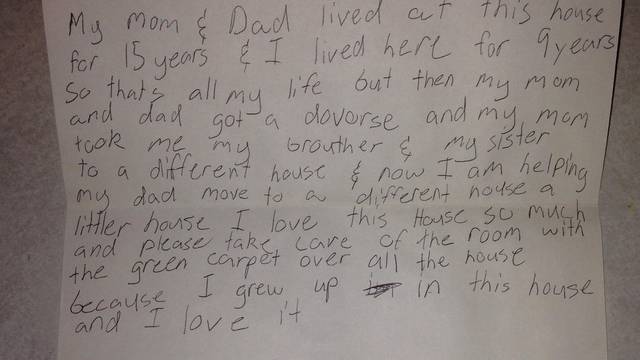 My mom & Dad lived at this house
for 15 years & I lived here for 9 years
So thats all my life but then my mom
and dad got a dovorse and my mom
took me my brouther & my sister
to a different house & now I am helping
my dad move to a different house a
littler house I love this House so much
and please take care of the room with
the green carpet over all the house
because I grew up in this house
and I love it